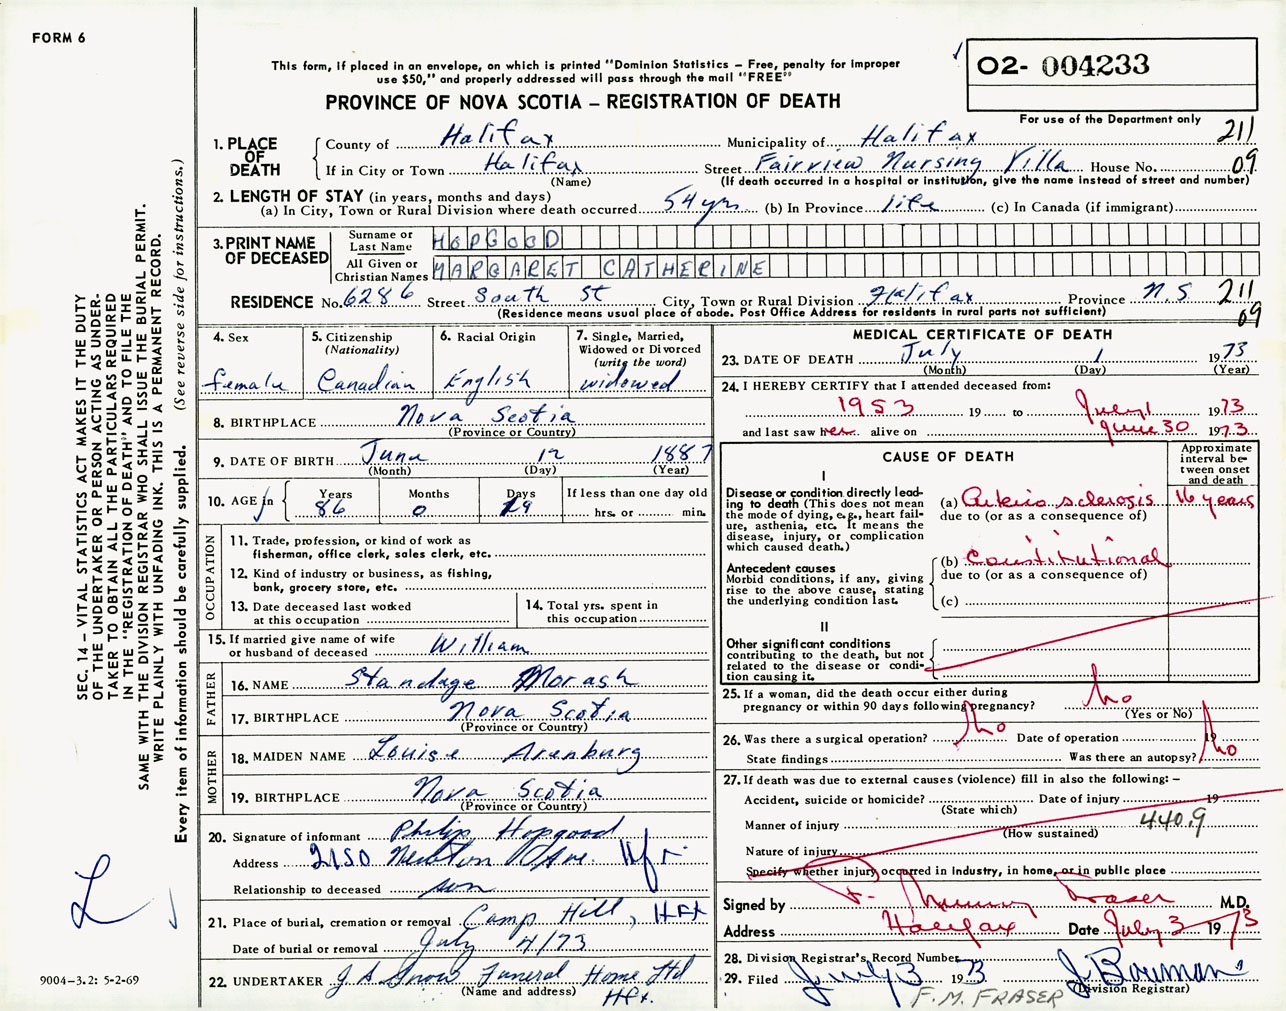 FORM 6
This form, if placed in an envelope, on which is printed "Dominion Statistics – Free, penalty for improper
use $50," and properly addressed will pass through the mail "FREE"
PROVINCE OF NOVA SCOTIA – REGISTRATION OF DEATH
02- 004233
For use of the Department only
211
09
1. PLACE OF DEATH
County of Halifax Municipality of Halifax
If in City or Town Halifax Street Fairview Nursing Villa House No.
(Name) (If death occurred in a hospital or institution, give the name instead of street and number)
2. LENGTH OF STAY (in years, months and days)
(a) In City, Town or Rural Division where death occurred 54 yrs (b) In Province life (c) In Canada (if immigrant)
3. PRINT NAME OF DECEASED
Surname or Last Name HOPGOOD
All Given or Christian Names MARGARET CATHERINE
RESIDENCE No. 6286 Street South St City, Town or Rural Division Halifax Province N.S 211
(Residence means usual place of abode. Post Office Address for residents in rural parts not sufficient) 09
4. Sex female
5. Citizenship (Nationality) Canadian
6. Racial Origin English
7. Single, Married, Widowed or Divorced (write the word) widowed
8. BIRTHPLACE Nova Scotia
(Province or Country)
9. DATE OF BIRTH June 12 1887
(Month) (Day) (Year)
10. AGE in Years 86 Months 0 Days 19
If less than one day old
hrs. or min.
OCCUPATION
11. Trade, profession, or kind of work as
fisherman, office clerk, sales clerk, etc.
12. Kind of industry or business, as fishing,
bank, grocery store, etc.
13. Date deceased last worked
at this occupation
14. Total yrs. spent in
this occupation
15. If married give name of wife
or husband of deceased William
FATHER
16. NAME Standage Morash
17. BIRTHPLACE Nova Scotia
(Province or Country)
MOTHER
18. MAIDEN NAME Louise Arenburg
19. BIRTHPLACE Nova Scotia
(Province or Country)
20. Signature of informant Philip Hopgood
Address 2150 Newton Ave. Hfx
Relationship to deceased son
21. Place of burial, cremation or removal Camp Hill, Hfx
Date of burial or removal July 4/73
22. UNDERTAKER J A Snow Funeral Home Ltd
(Name and address) Hfx.
MEDICAL CERTIFICATE OF DEATH
23. DATE OF DEATH July 1 1973
(Month) (Day) (Year)
24. I HEREBY CERTIFY that I attended deceased from:
1953 19 to July 1 1973
and last saw her alive on June 30 1973
CAUSE OF DEATH
Approximate interval between onset and death
I
Disease or condition directly leading to death (This does not
mean the mode of dying, e.g., heart failure, asthenia, etc. It means the
disease, injury, or complication
which caused death.)
(a) Arterio sclerosis 16 years
due to (or as a consequence of)
Antecedent causes
Morbid conditions, if any, giving
rise to the above cause, stating
the underlying condition last.
(b) Constitutional
due to (or as a consequence of)
(c)
II
Other significant conditions
contributing to the death, but not
related to the disease or condition causing it.
25. If a woman, did the death occur either during
pregnancy or within 90 days following pregnancy? No
(Yes or No)
26. Was there a surgical operation? No Date of operation 19
State findings Was there an autopsy? No
27. If death was due to external causes (violence) fill in also the following: –
Accident, suicide or homicide? Date of injury 19
(State which)
Manner of injury 440.9
(How sustained)
Nature of injury
Specify whether injury occurred in industry, in home, or in public place
Signed by F. Murray Fraser M.D.
Address Halifax Date July 3 1973
28. Division Registrar's Record Number
29. Filed July 3 1973 J. Bowman
(Division Registrar)
F.M. FRASER
SEC. 14 – VITAL STATISTICS ACT MAKES IT THE DUTY
OF THE UNDERTAKER OR PERSON ACTING AS UNDER-
TAKER TO OBTAIN ALL THE PARTICULARS REQUIRED
IN THE "REGISTRATION OF DEATH" AND TO FILE THE
SAME WITH THE DIVISION REGISTRAR WHO SHALL ISSUE THE BURIAL PERMIT.
WRITE PLAINLY WITH UNFADING INK. THIS IS A PERMANENT RECORD.
Every item of information should be carefully supplied. (See reverse side for instructions.)
L
9004-3.2: 5-2-69